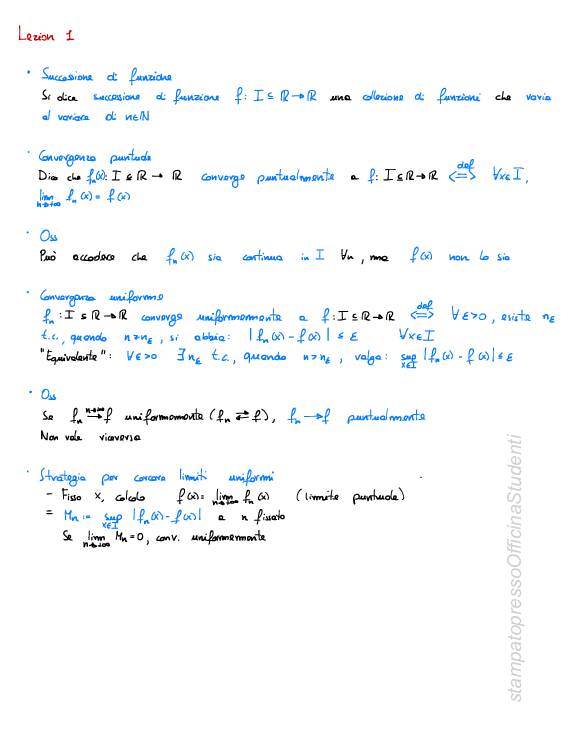 Lezion 1
• Successione di funzione
Si dice successione di funzione f: I ⊆ ℝ → ℝ una collezione di funzioni che varia
al variare di n∈ℕ
• Convergenza puntuale
Dico che fₙ(x): I ⊆ ℝ → ℝ converge puntualmente a f: I ⊆ ℝ → ℝ ⟺(def) ∀x∈I,
lim_{n→+∞} fₙ(x) = f(x)
• Oss
Può accadere che fₙ(x) sia continua in I ∀n, ma f(x) non lo sia
• Convergenza uniforme
fₙ: I ⊆ ℝ → ℝ converge uniformemente a f: I ⊆ ℝ → ℝ ⟺(def) ∀ε>0, esiste n_ε
t.c., quando n>n_ε, si abbia: |fₙ(x) - f(x)| ≤ ε ∀x∈I
"Equivalente": ∀ε>0 ∃n_ε t.c., quando n>n_ε, valga: sup_{x∈I} |fₙ(x) - f(x)| ≤ ε
• Oss
Se fₙ →(n→∞) f uniformemente (fₙ ⇄ f), fₙ → f puntualmente
Non vale viceversa
• Strategia per cercare limiti uniformi
- Fisso x, calcolo f(x) = lim_{n→+∞} fₙ(x) (limite puntuale)
= Mₙ := sup_{x∈I} |fₙ(x) - f(x)| a n fissato
Se lim_{n→+∞} Mₙ = 0, conv. uniformemente
stampatopressoOfficinaStudenti